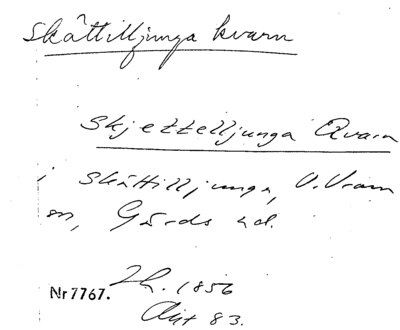 Skättilljunga kvarn
Skjettelljunga Qvarn
i Skättilljunga, V. Vram
sn, Gärds hd.
Nr 7767. 1856
Akt 83.